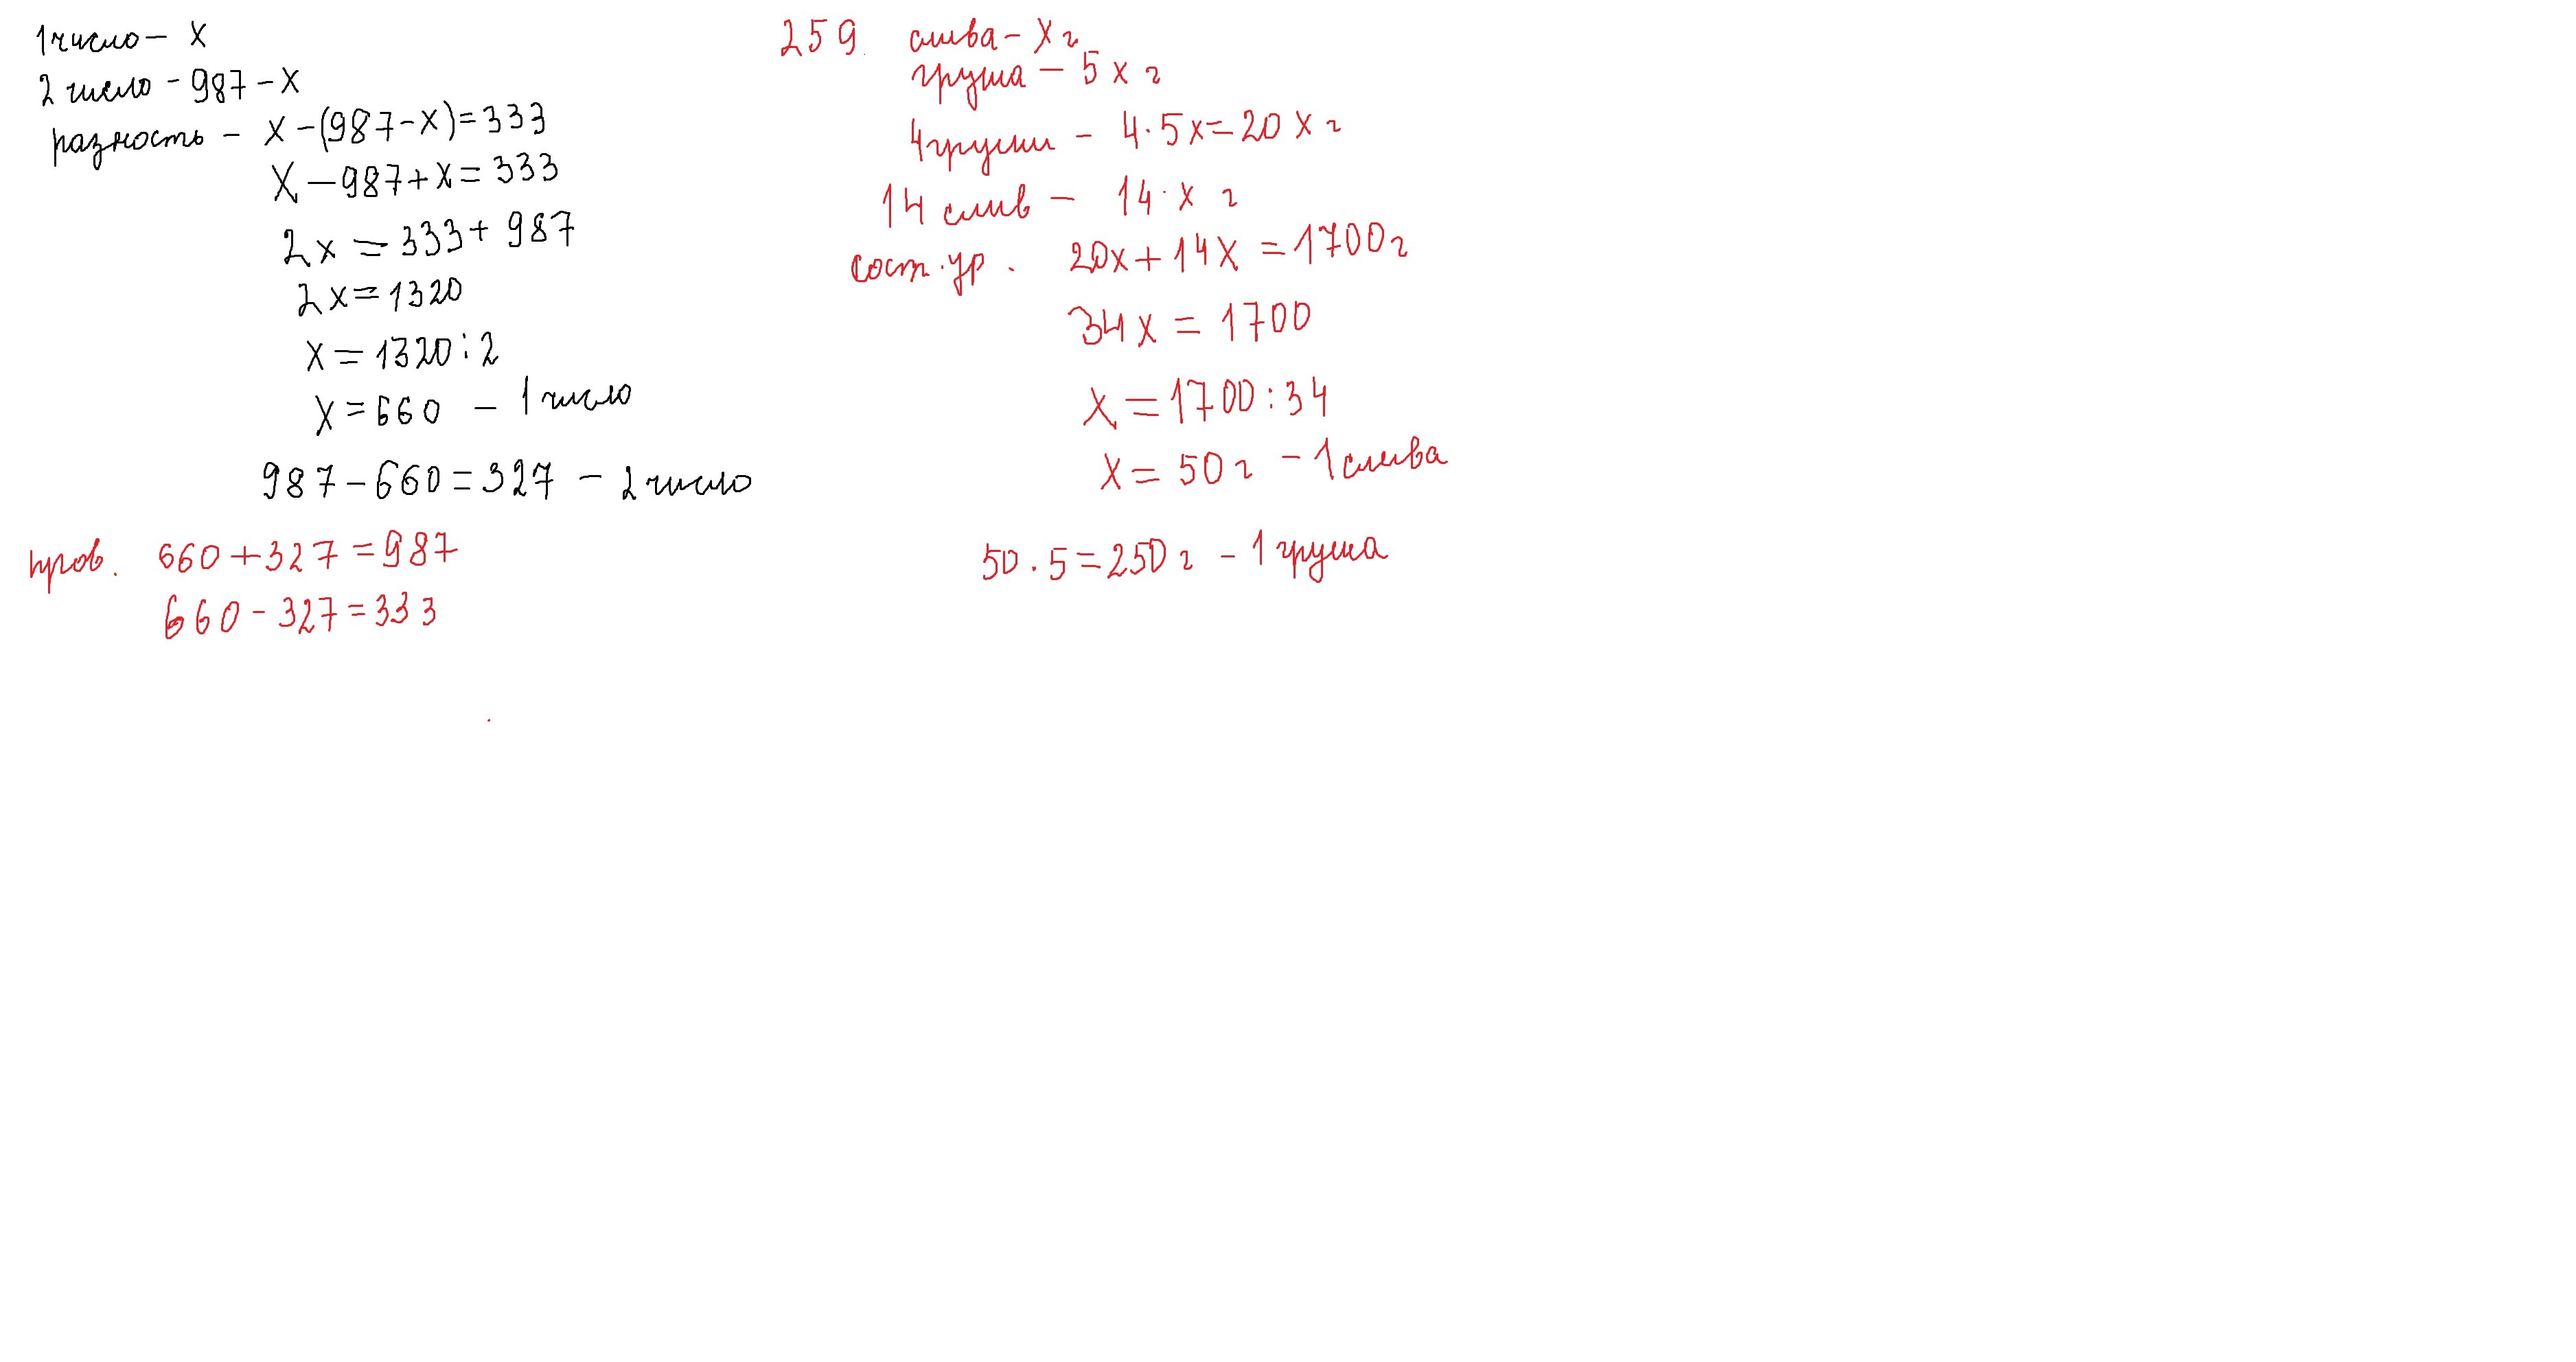 1число - x
2 число - 987 - x
разность - x - (987 - x) = 333
x - 987 + x = 333
2x = 333 + 987
2x = 1320
x = 1320 : 2
x = 660 - 1 число
987 - 660 = 327 - 2 число
пров. 660 + 327 = 987
660 - 327 = 333
259. слива - x г
груша - 5 x г
4груши - 4 · 5x = 20 x г
14 слив - 14 · x г
сост. ур. 20x + 14x = 1700г
34x = 1700
x = 1700 : 34
x = 50 г - 1слива
50 · 5 = 250 г - 1 груша